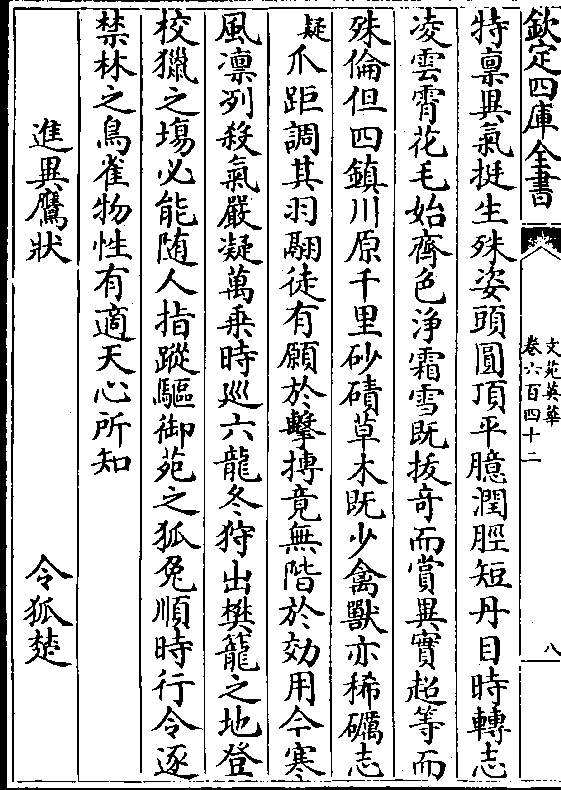 欽定四庫全書
文苑英華
卷六百四十二
八
特禀異氣挺生殊姿頭圓頂平臆潤脛短丹目時轉志
凌雲霄花毛始齊色淨霜雪既拔竒而賞異實超等而
殊倫但四鎮川原千里砂磧草木既少禽獸亦稀礪志
疑爪距調其羽翮徒有願於擊摶竟無階於効用今寒
風凛列殺氣嚴凝萬乗時廵六龍冬狩出樊籠之地登
校獵之塲必能随人指蹤驅御苑之狐兔順時行令逐
禁林之鳥雀物性有適天心所知
進異鷹狀 令狐楚